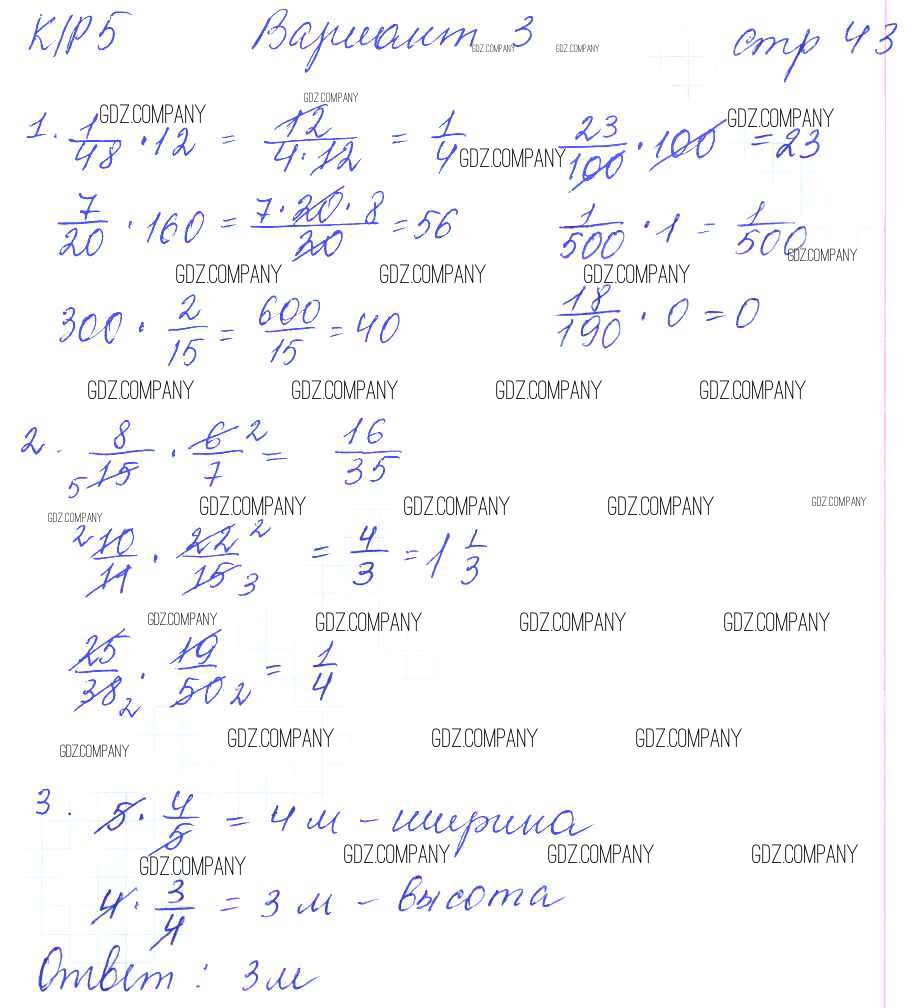 К/Р 5 Вариант 3 стр 43
GDZ.COMPANY GDZ.COMPANY
GDZ.COMPANY
GDZ.COMPANY GDZ.COMPANY
1. 1/48 · 12 = 12/(4·12) = 1/4 23/100 · 100 = 23
GDZ.COMPANY
7/20 · 160 = (7·20·8)/20 = 56 1/500 · 1 = 1/500
GDZ.COMPANY
GDZ.COMPANY GDZ.COMPANY GDZ.COMPANY
300 · 2/15 = 600/15 = 40 18/190 · 0 = 0
GDZ.COMPANY GDZ.COMPANY GDZ.COMPANY GDZ.COMPANY
2. 8/15 5 · 6/7 2 = 16/35
GDZ.COMPANY GDZ.COMPANY GDZ.COMPANY GDZ.COMPANY
GDZ.COMPANY
2 10/11 · 22/15 2 3 = 4/3 = 1 1/3
GDZ.COMPANY GDZ.COMPANY GDZ.COMPANY GDZ.COMPANY
25/38 2 · 19/50 2 = 1/4
GDZ.COMPANY GDZ.COMPANY GDZ.COMPANY GDZ.COMPANY
3. 5 · 4/5 = 4 м – ширина
GDZ.COMPANY GDZ.COMPANY GDZ.COMPANY GDZ.COMPANY
4 · 3/4 = 3 м – высота
Ответ: 3м